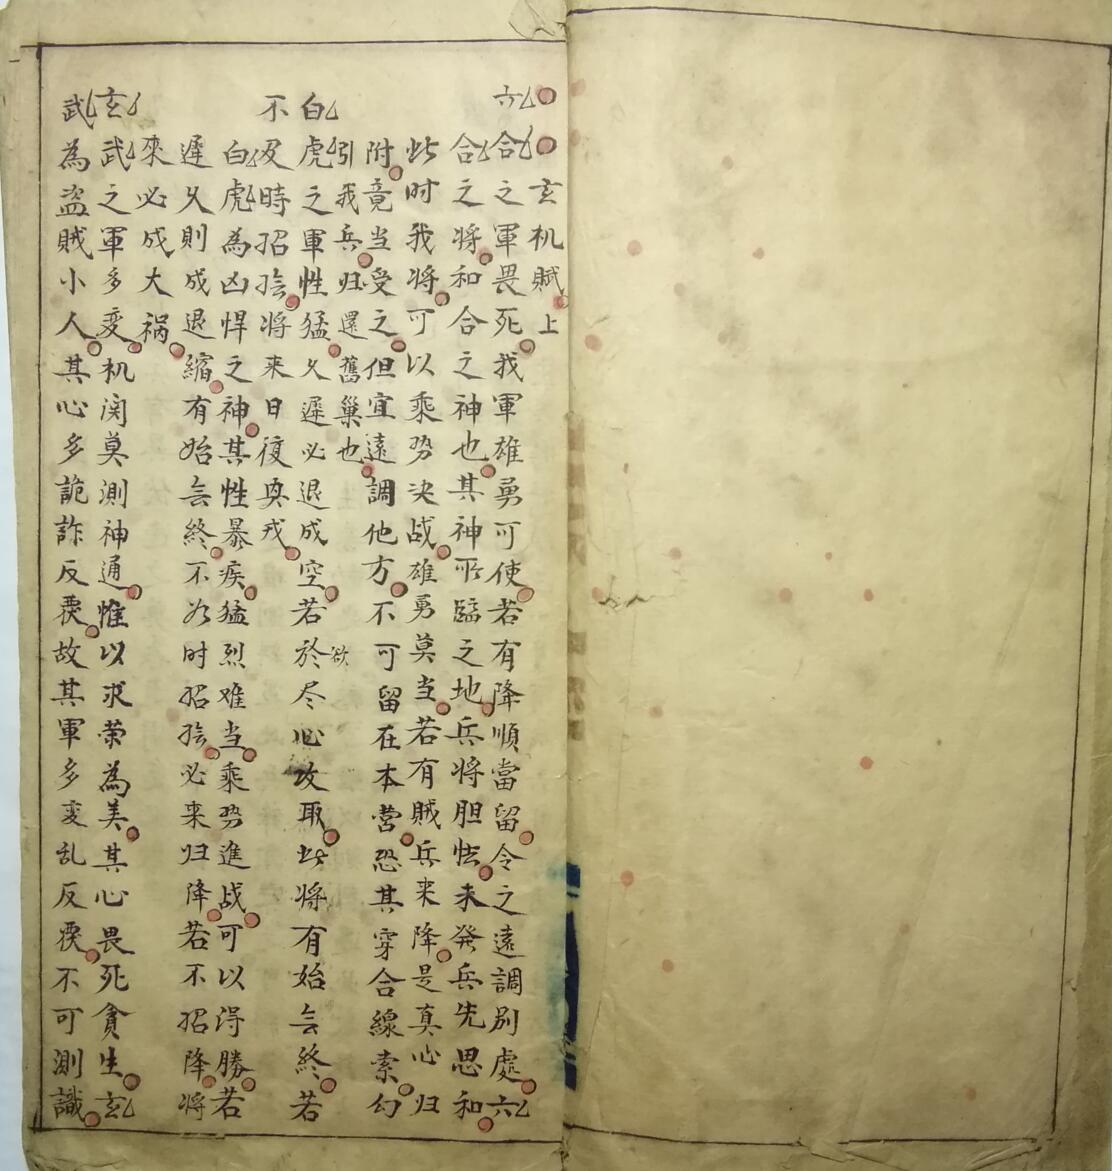 玄机赋上
六合之軍畏死我軍雄勇可使若有降順當留令之遠調别處六
合之将和合之神也其神所臨之地兵将胆怯未発兵先思和
此时我将可以乘势决战雄勇莫当若有賊兵来降是真心归
附竟当受之但宜遠調他方不可留在本营恐其穿合線索勾
引我兵归還舊巢也
白虎之軍性猛久遲必退成空若於欲尽心攻取此将有始無終若
不及時招撿将来日復與戎
白虎為凶悍之神其性暴疾猛烈难当乘势進战可以淂勝若
遲久則成退縮有始無終不及时招撿必来归降若不招降将
來必成大祸
玄武之軍多变机関莫測神通惟以求荣為美其心畏死貪生玄
武為盗賊小人其心多詭詐反覆故其軍多变乱反覆不可測識